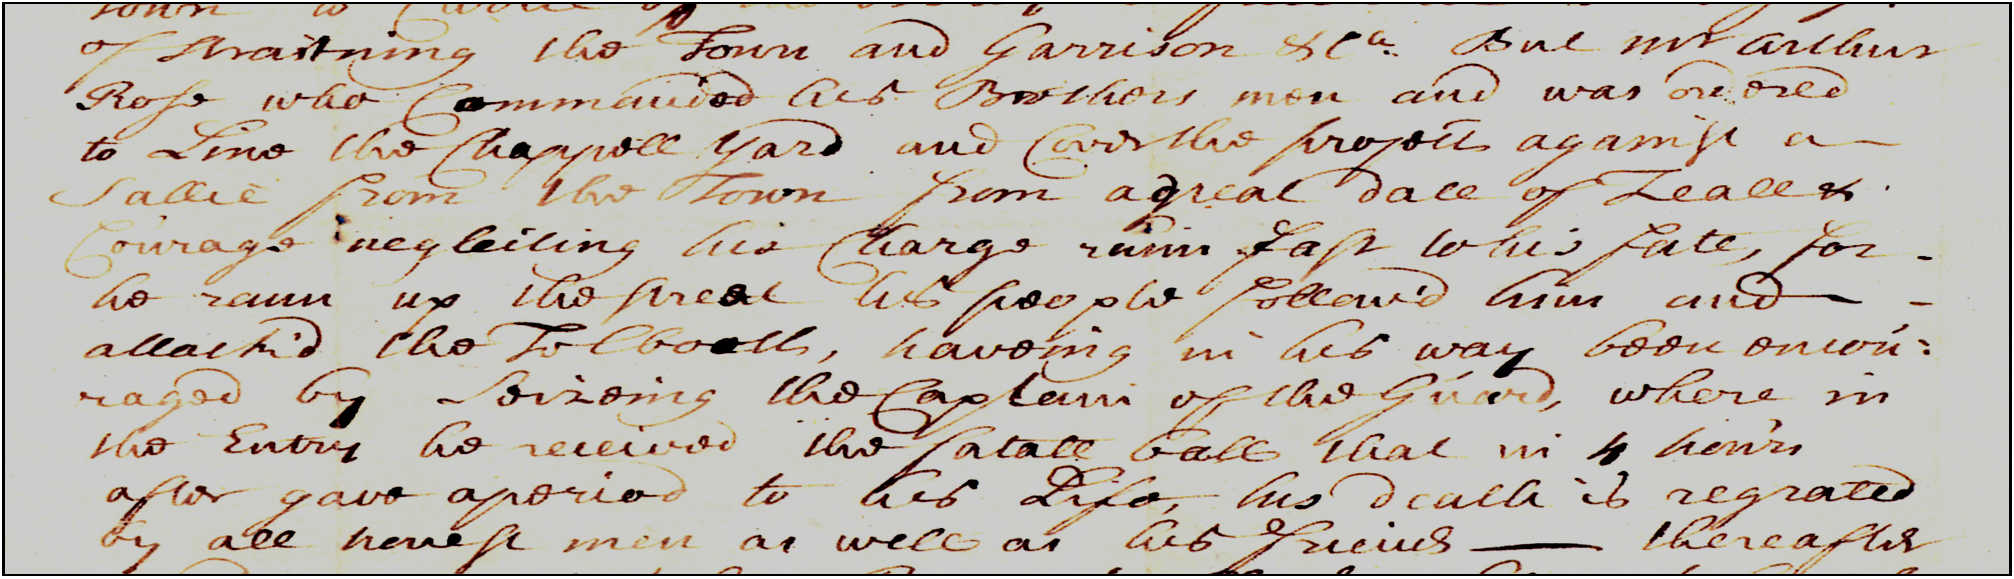 of straitning the Town and Garrison &Ca. But mr Arthur
Rose who Commanded his Brothers men and was ordered
to Line the Chappell Yard and Cover the projects against a
Sallie from the Town from a great dale of Zeall &
Courage neglecting his Charge runn fast to his fate, for -
he rann up the street his people follow'd him and - -
attack'd the Tolbooth, haveing in his way been encou:
raged by Seizeing the Captain of the Guard, where in
the Entry he received the fatall ball that in 4 hours
after gave a period to his Life, his death is regrated
by all honest men as well as his friends — thereafter